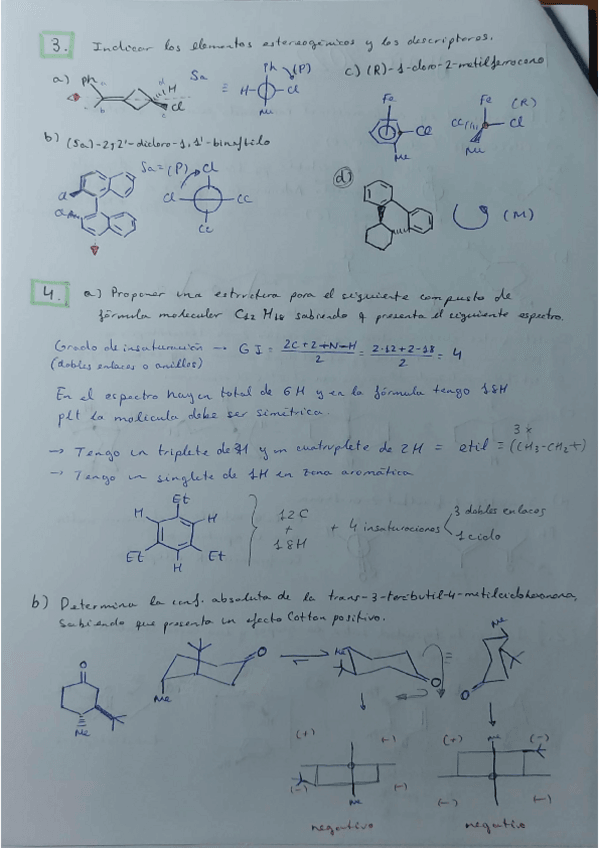 3. Indicar los elementos estereogénicos y los descriptores.
a) Ph a d H Sa ≡ Ph (P) H Cl Me
b c Cl
c) (R)-1-cloro-2-metilferroceno
Fe Cl Me Fe (R) Cl Me
b) (Sa)-2,2'-dicloro-1,1'-binaftilo
Sa = (P) Cl Cl
d) (M)
4. a) Proponer una estructura para el siguiente compuesto de
fórmula molecular C12 H18 sabiendo q presenta el siguiente espectro.
Grado de insaturación → GI = 2C+2+N-H / 2 = 2·12+2-18 / 2 = 4
(dobles enlaces o anillos)
En el espectro hay en total de 6H y en la fórmula tengo 18H
plt la molécula debe ser simétrica.
→ Tengo un triplete de 3H y un cuatruplete de 2H = etil = 3x (CH3-CH2+)
→ Tengo un singlete de 1H en zona aromática
Et H H Et Et H
12C + 18H + 4 insaturaciones 3 dobles enlaces
1 ciclo
b) Determina la conf. absoluta de la trans-3-tercbutil-4-metilciclohexanona,
sabiendo que presenta un efecto Cotton positivo.
O Me
O Me
Me O
Me O
(+) (-) (-) (-) Me
negativo
(+) Me (-) (-) (-)
negativo